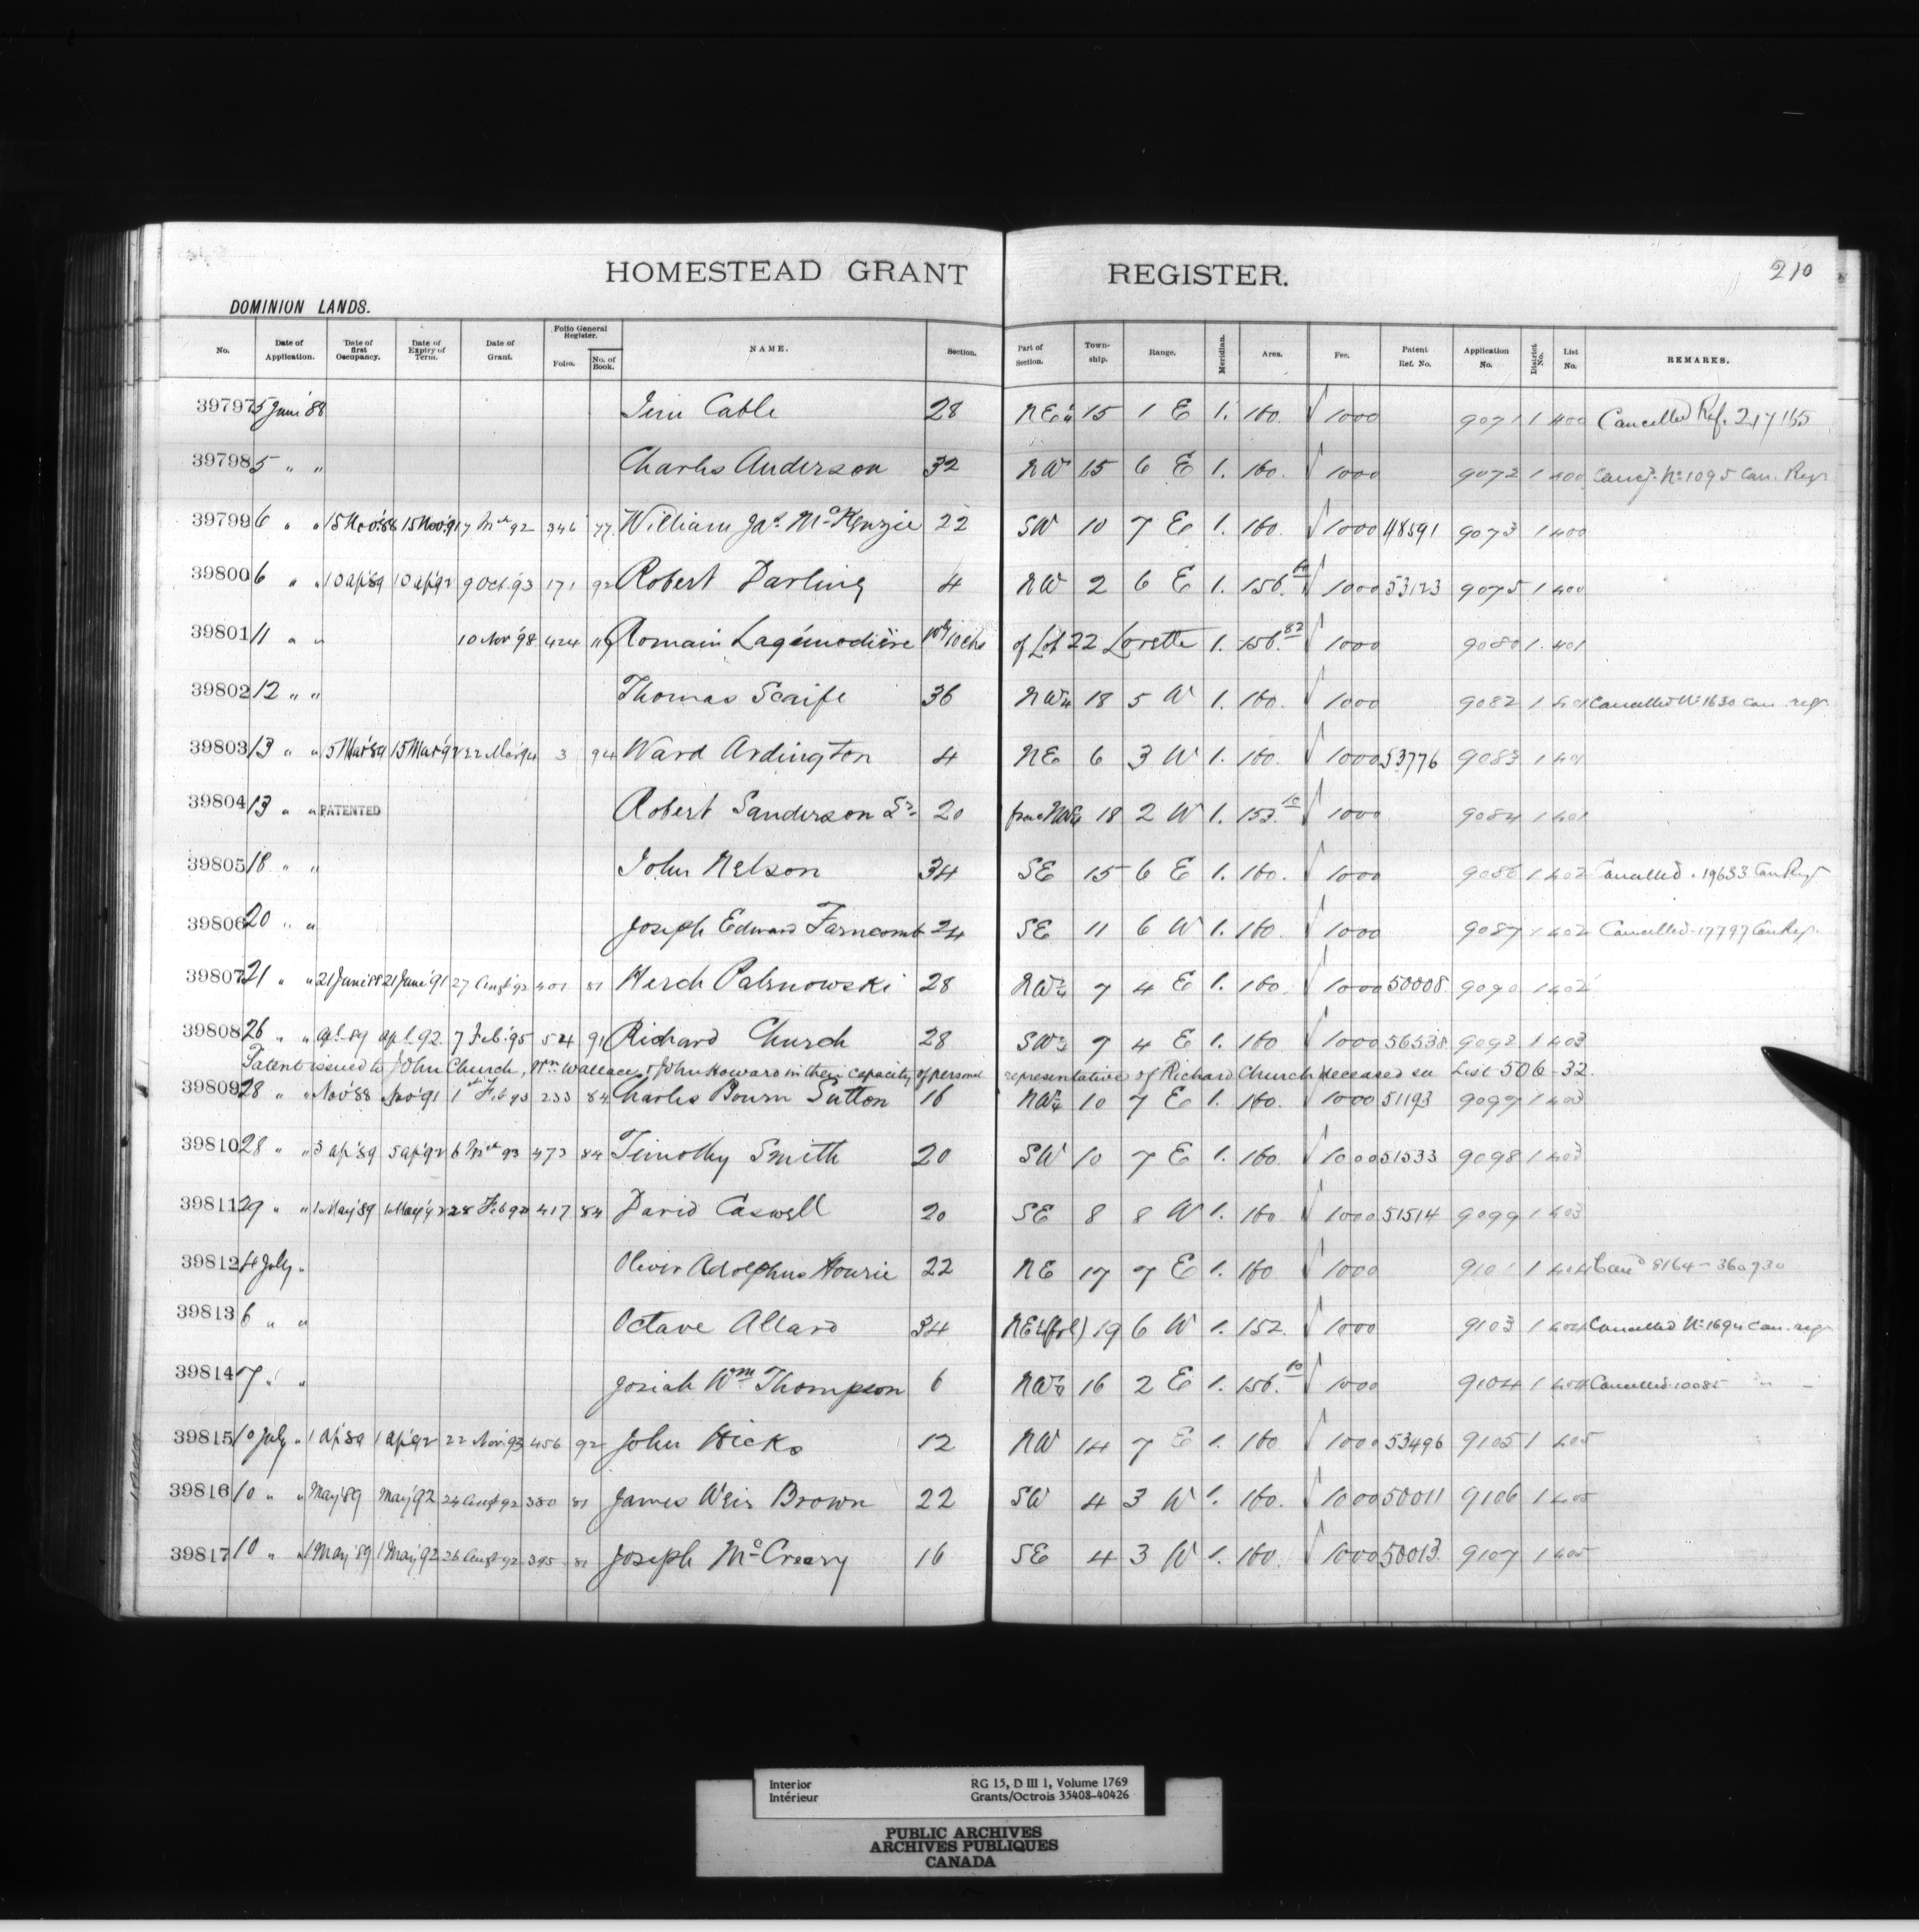 HOMESTEAD GRANT REGISTER. 210
DOMINION LANDS.
No. Date of Application. Date of first Occupancy. Date of Expiry of Term. Date of Grant. Folio General Register. Folio. No. of Book. NAME. Section. Part of Section. Town-ship. Range. Meridian. Area. Fee. Patent Ref. No. Application No. District No. List No. REMARKS.
39797 5 June '88 Jim Cable 28 NE¼ 15 1 E 1. 160. √ 1000 9071 1 400 Cancelled Ref. 217165
39798 5 " " Charles Anderson 32 NW 15 6 E 1. 160. √ 1000 9072 1 400 No 1095 Can. Regr
39799 6 " " 15 Nov '88 15 Nov '91 7 Mch 92 346 77 William Jas. McKenzie 22 SW 10 7 E 1. 160. √ 1000 48591 9073 1 400
39800 6 " " 10 ap '89 10 ap '92 9 Oct. '93 171 92 Robert Darling 4 NW 2 6 E 1. 156. √ 1000 53123 9075 1 400
39801 11 " " 10 Nov '98 424 Romain Lagémodière 10 chs of Lot 22 Lorette 1. 156.82 √ 1000 9080 1. 401
39802 12 " " Thomas Scaife 36 NW¼ 18 5 W 1. 160. √ 1000 9082 1 401 Cancelled No 1630 Can. regr
39803 13 " " 15 Mar '89 15 Mar '92 22 Mar '94 3 94 Ward Ardington 4 NE 6 3 W 1. 160. √ 1000 53776 9083 1 401
39804 13 " " PATENTED Robert Sanderson Sr 20 18 2 W 1. 153.10 √ 1000 9084 1 401
39805 18 " " John Nelson 34 SE 15 6 E 1. 160. √ 1000 9086 1 402 Cancelled . 19633 Can Regr
39806 20 " " Joseph Edward Farncomb 24 SE 11 6 W 1. 160. √ 1000 9087 1 402 Cancelled - 17797 Can Regr
39807 21 " " 21 June '88 21 June '91 27 Augt 92 401 81 Herch Palsnowski 28 NW¼ 7 4 E 1. 160. √ 1000 50008 9090 1 402
39808 26 " " apl. 89 apl. 92 7 Feb. '95 524 91 Richard Church 28 SW¼ 7 4 E 1. 160 √ 1000 56538 9092 1 403
Patent issued to John Church, Wm Wallace, & John Howard in their capacity of personal representative of Richard Church deceased see List 506-32.
39809 28 " " Nov '88 Nov '91 1st Feb 93 233 84 Charles Bourn Sutton 16 NW¼ 10 7 E 1. 160. √ 1000 51193 9097 1 403
39810 28 " " 5 ap '89 5 ap '92 6 Mch 93 473 84 Timothy Smith 20 SW 10 7 E 1. 160. √ 1000 51533 9098 1 403
39811 29 " " 1 May '89 1 May '92 28 Feb 93 417 84 David Caswell 20 SE 8 8 W 1. 160 √ 1000 51514 9099 1 403
39812 4 July " Oliver Adolphus Hourie 22 NE 17 7 E 1. 160 √ 1000 9101 1 404 Cand 8164 - 360730
39813 6 " " Octave Allard 34 NE¼ (frl) 19 6 W 1. 152. √ 1000 9103 1 404 Cancelled No 1694 Can. regr
39814 7 " " Josiah Wm Thompson 6 NW¼ 16 2 E 1. 156. √ 1000 9104 1 404 Cancelled 10085 " -
39815 10 July " 1 Ap '89 1 Ap '92 22 Nov. '93 456 92 John Hicks 12 NW 14 7 E 1. 160 √ 1000 53496 9105 1 405
39816 10 " " May '89 May '92 24 Augt 92 380 81 James Weir Brown 22 SW 4 3 W 1. 160. √ 1000 50011 9106 1 405
39817 10 " " 1 May '89 1 May '92 26 Augt 92 395 81 Joseph McCreary 16 SE 4 3 W 1. 160. √ 1000 50013 9107 1 405
Interior RG 15, D III 1, Volume 1769
Intérieur Grants/Octrois 35408-40426
PUBLIC ARCHIVES
ARCHIVES PUBLIQUES
CANADA